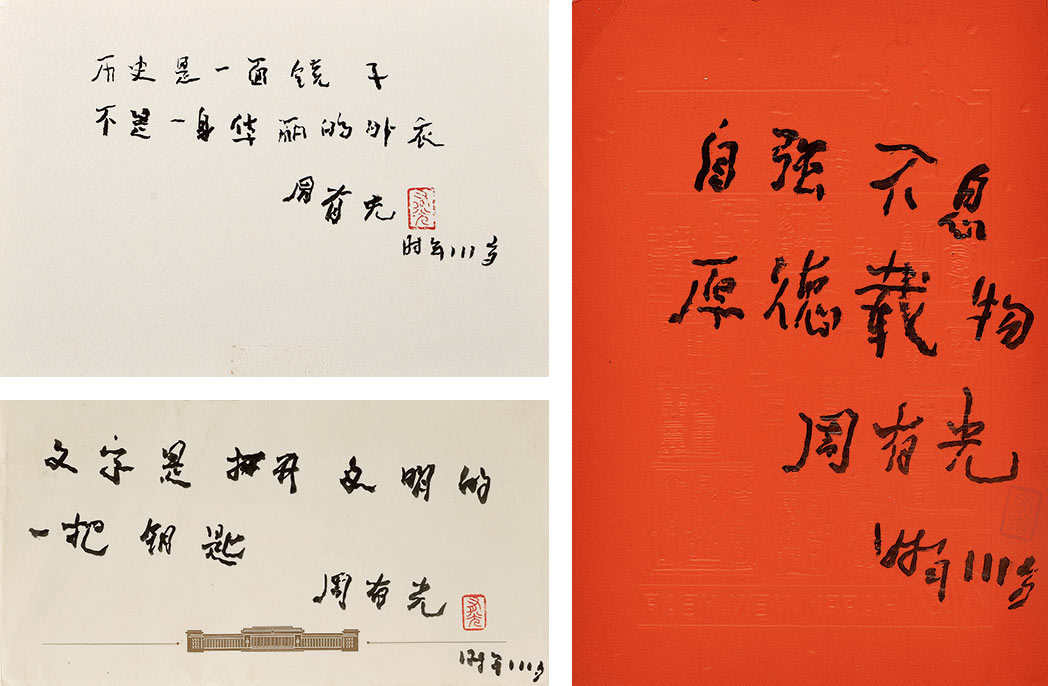 历史是一面镜子
不是一身华丽的外衣
周有光
时年111岁
文字是打开文明的
一把钥匙
周有光
时年111岁
自强不息
厚德载物
周有光
时年111岁